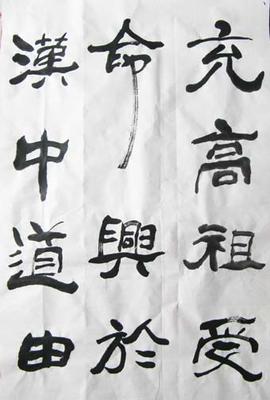 充高祖受
命興於
漢中道由